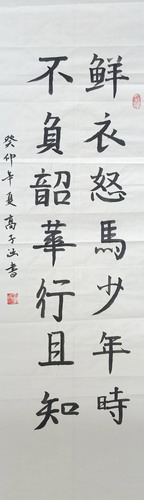 鮮衣怒馬少年時
不負韶華行且知
癸卯年夏高子出書